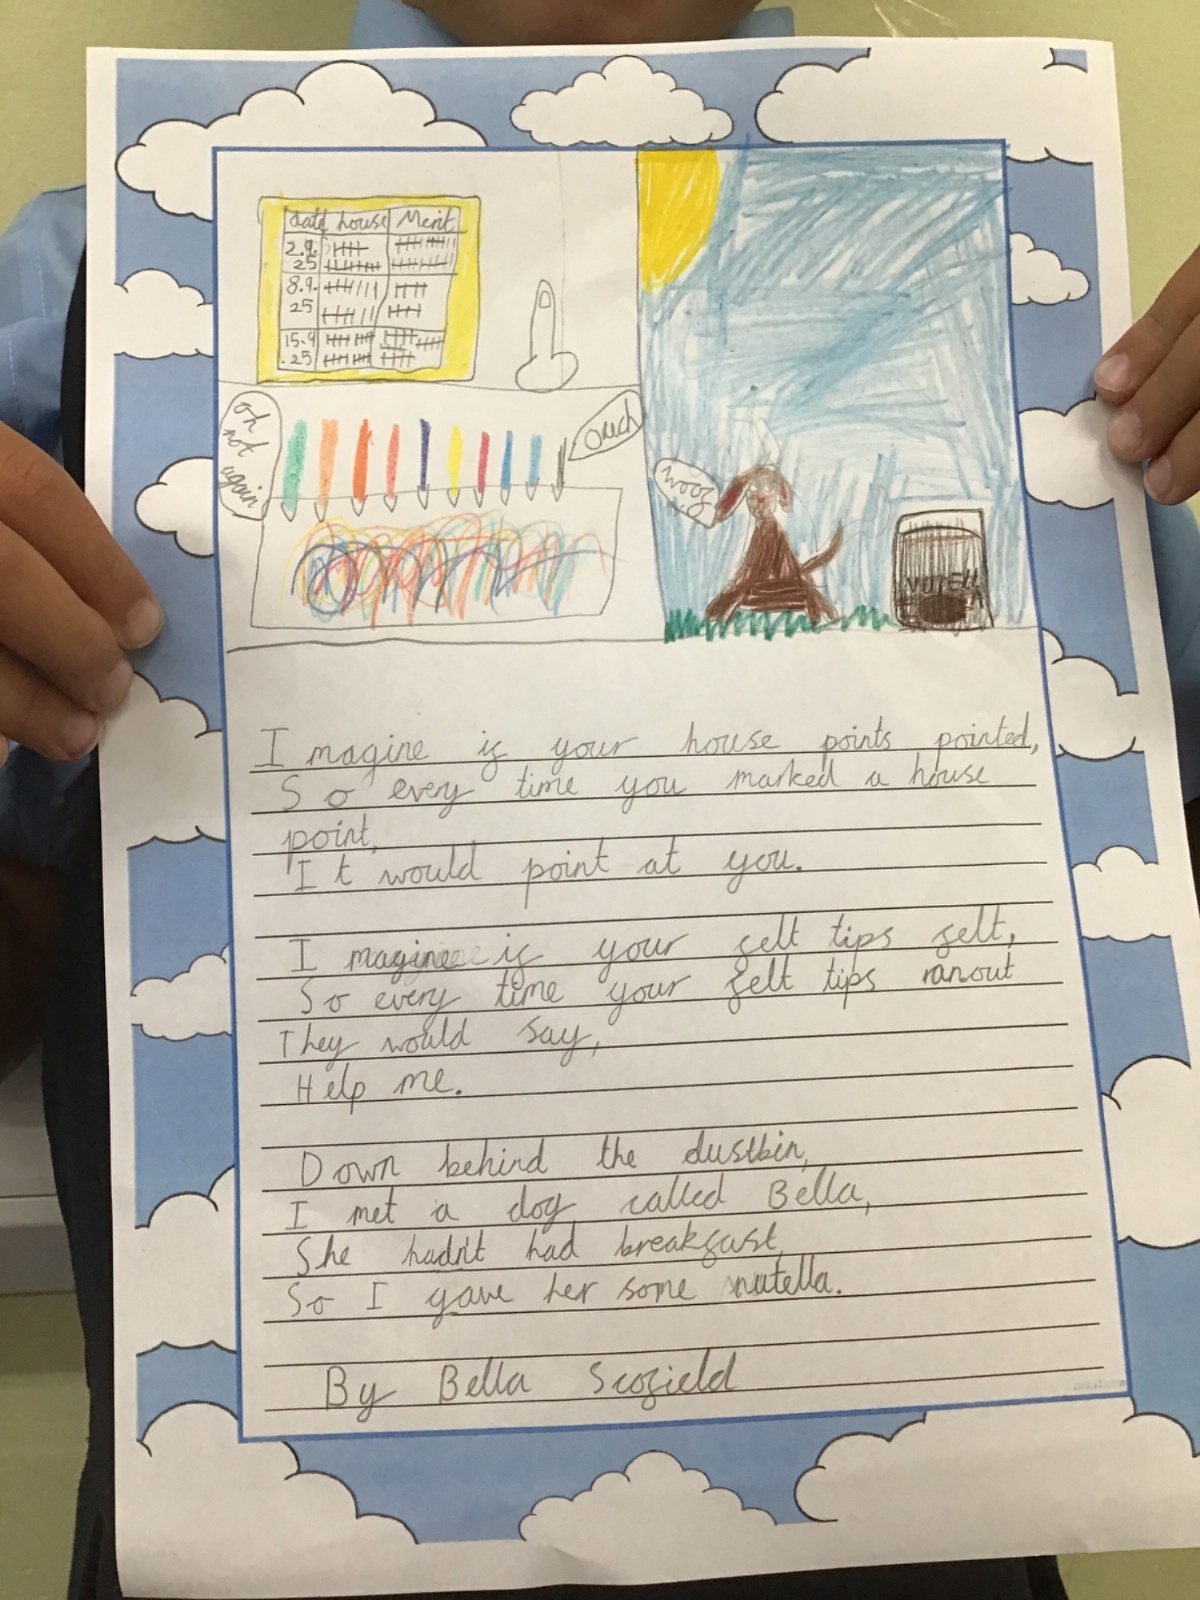 date house Merit
2.9.
25
8.9.
25
15.9
.25
oh
not
again
ouch
woof
Imagine if your house points pointed,
So every time you marked a house
point,
It would point at you.
Imagine if your felt tips felt,
So every time your felt tips ranout
They would say,
Help me.
Down behind the dustbin,
I met a dog called Bella,
She hadn't had breakfast,
So I gave her some nutella.
By Bella Scofield